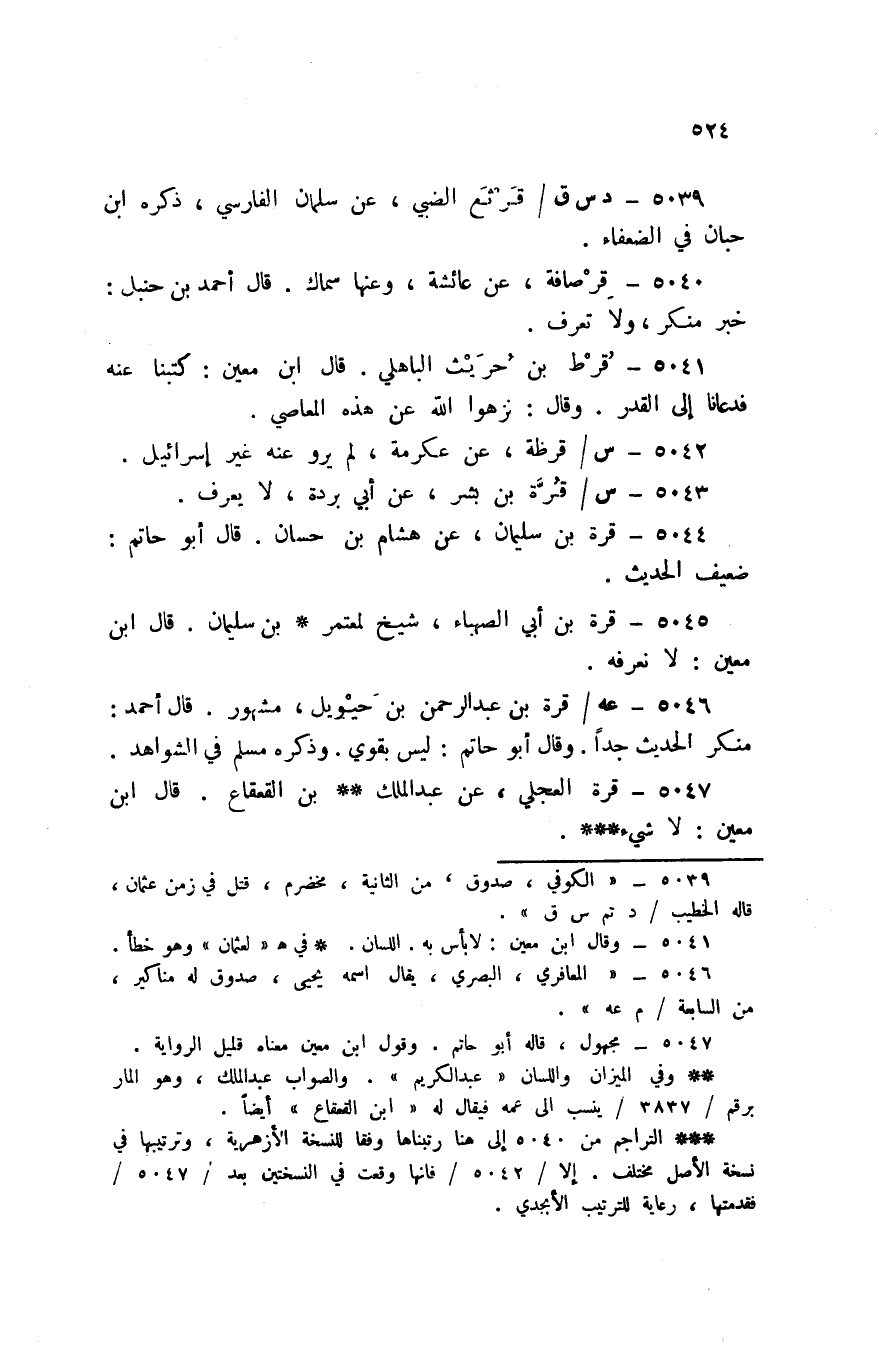 ٥٢٤
٥٠٣٩ – د س ق / قَرْثَع الضبي ، عن سلمان الفارسي ، ذكره ابن
حبان في الضعفاء .
٥٠٤٠ – قِرْصافة ، عن عائشة ، وعنها سماك . قال أحمد بن حنبل :
خبر منكر ، ولا تعرف .
٥٠٤١ – قُرْط بن حُرَيْث الباهلي . قال ابن معين : كتبنا عنه
فدعانا إلى القدر . وقال : نزهوا الله عن هذه المعاصي .
٥٠٤٢ – س / قرظة ، عن عكرمة ، لم يرو عنه غير إسرائيل .
٥٠٤٣ – س / قُرَّة بن بشر ، عن أبي بردة ، لا يعرف .
٥٠٤٤ – قرة بن سليمان ، عن هشام بن حسان . قال أبو حاتم :
ضعيف الحديث .
٥٠٤٥ – قرة بن أبي الصهباء ، شيخ لمعتمر * بن سليمان . قال ابن
معين : لا نعرفه .
٥٠٤٦ – عه / قرة بن عبدالرحمن بن حَيْويل ، مشهور . قال أحمد :
منكر الحديث جداً . وقال أبو حاتم : ليس بقوي . وذكره مسلم في الشواهد .
٥٠٤٧ – قرة العجلي ، عن عبدالملك ** بن القعقاع . قال ابن
معين : لا شيء*** .
٥٠٣٩ – « الكوفي ، صدوق ، من الثانية ، مخضرم ، قتل في زمن عثمان ،
قاله الخطيب / د تم س ق » .
٥٠٤١ – وقال ابن معين : لابأس به . اللسان . * في ه « لعثمان » وهو خطأ .
٥٠٤٦ – « المعافري ، البصري ، يقال اسمه يحيى ، صدوق له مناكير ،
من السابعة / م عه » .
٥٠٤٧ – مجهول ، قاله أبو حاتم . وقول ابن معين معناه قليل الرواية .
** وفي الميزان واللسان « عبدالكريم » . والصواب عبدالملك ، وهو المار
برقم / ٣٨٣٧ / ينسب الى عمه فيقال له « ابن القعقاع » أيضاً .
*** التراجم من ٥٠٤٠ إلى هنا رتبناها وفقا للنسخة الأزهرية ، وترتيبها في
نسخة الأصل مختلف . إلا / ٥٠٤٢ / فانها وقعت في النسختين بعد / ٥٠٤٧ /
فقدمتها ، رعاية للترتيب الأبجدي .